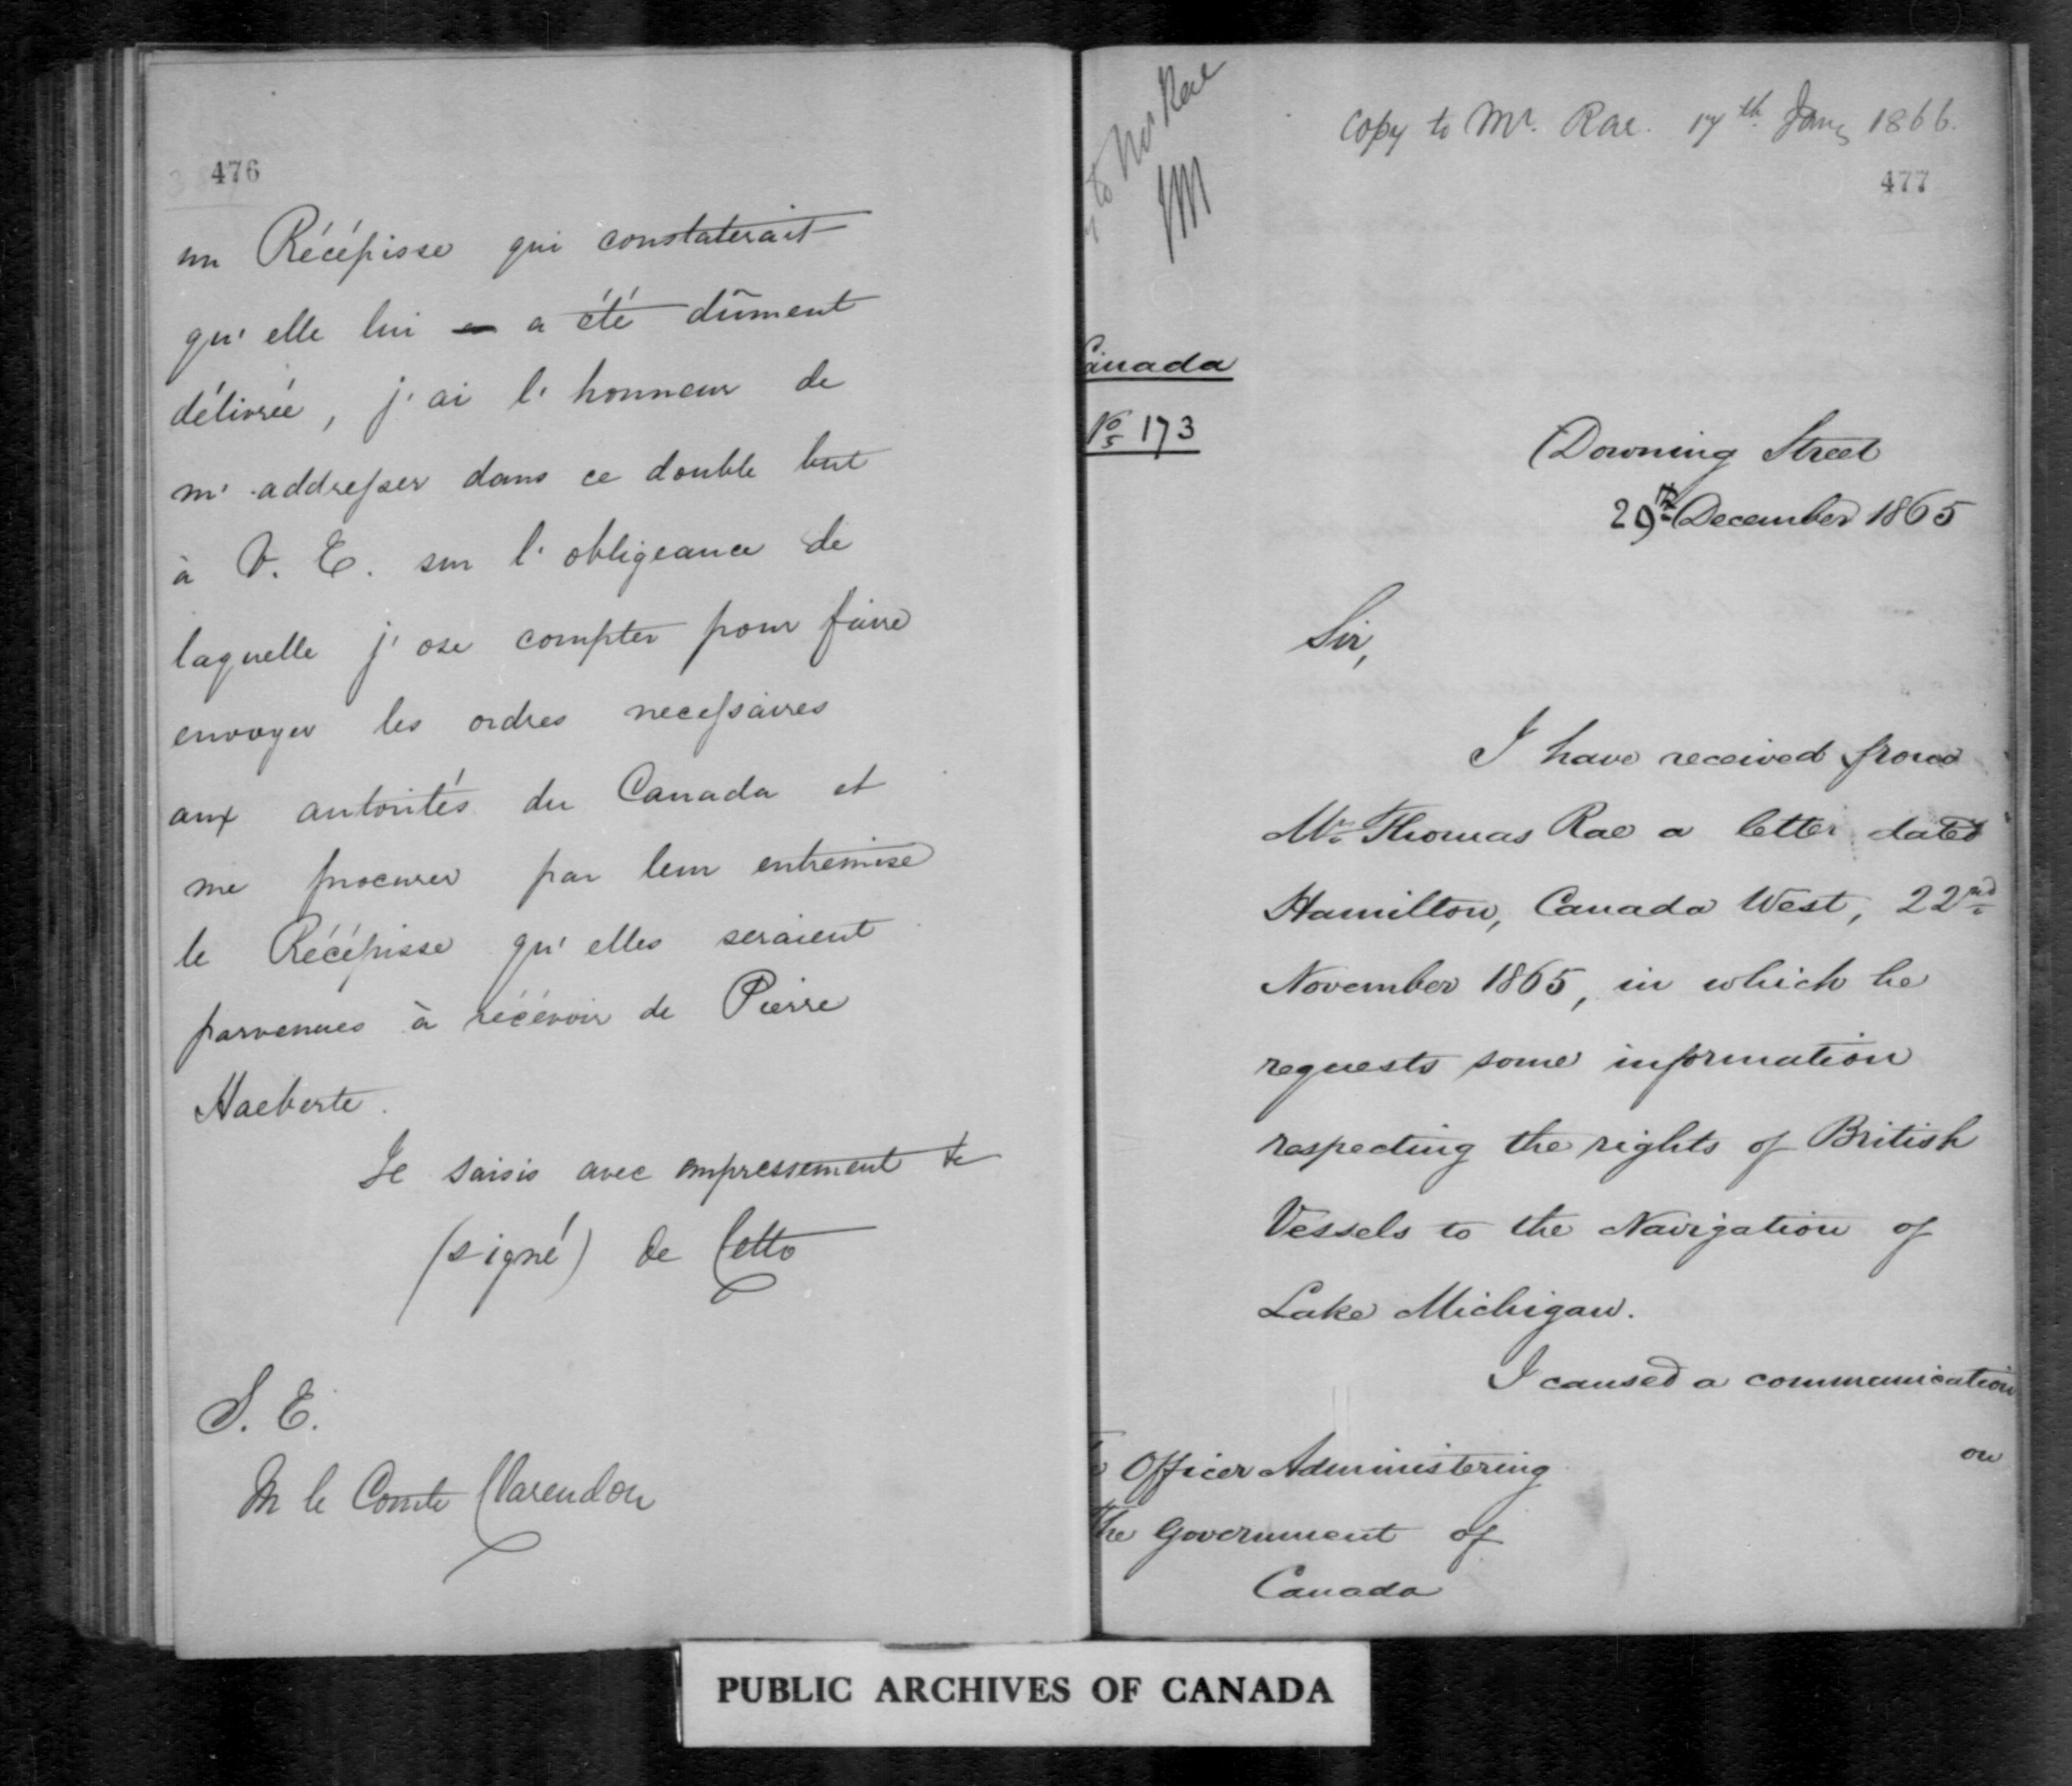 476
un Récépisse qui constaterait
qu'elle lui a été dûment
délivrée, j'ai l'honneur de
m'addresser dans ce double but
à V. E. sur l'obligeance de
laquelle j'ose compter pour faire
envoyer les ordres necessaires
aux autorités du Canada et
me procurer par leur entremise
le Récépisse qu'elles seraient
parvenues à récévoir de Pierre
Haeberte.
Je saisis avec empressement &c
(signé) de Cetto
S. E.
M le Comte Clarendon
to Mr Rae
Copy to Mr. Rae. 17th Jany 1866.
477
Canada
No 173
Downing Street
29th December 1865
Sir,
I have received from
Mr. Thomas Rae a letter dated
Hamilton, Canada West, 22nd
November 1865, in which he
requests some information
respecting the rights of British
Vessels to the Navigation of
Lake Michigan.
I caused a communication
on
Officer Administering
the Government of
Canada
PUBLIC ARCHIVES OF CANADA